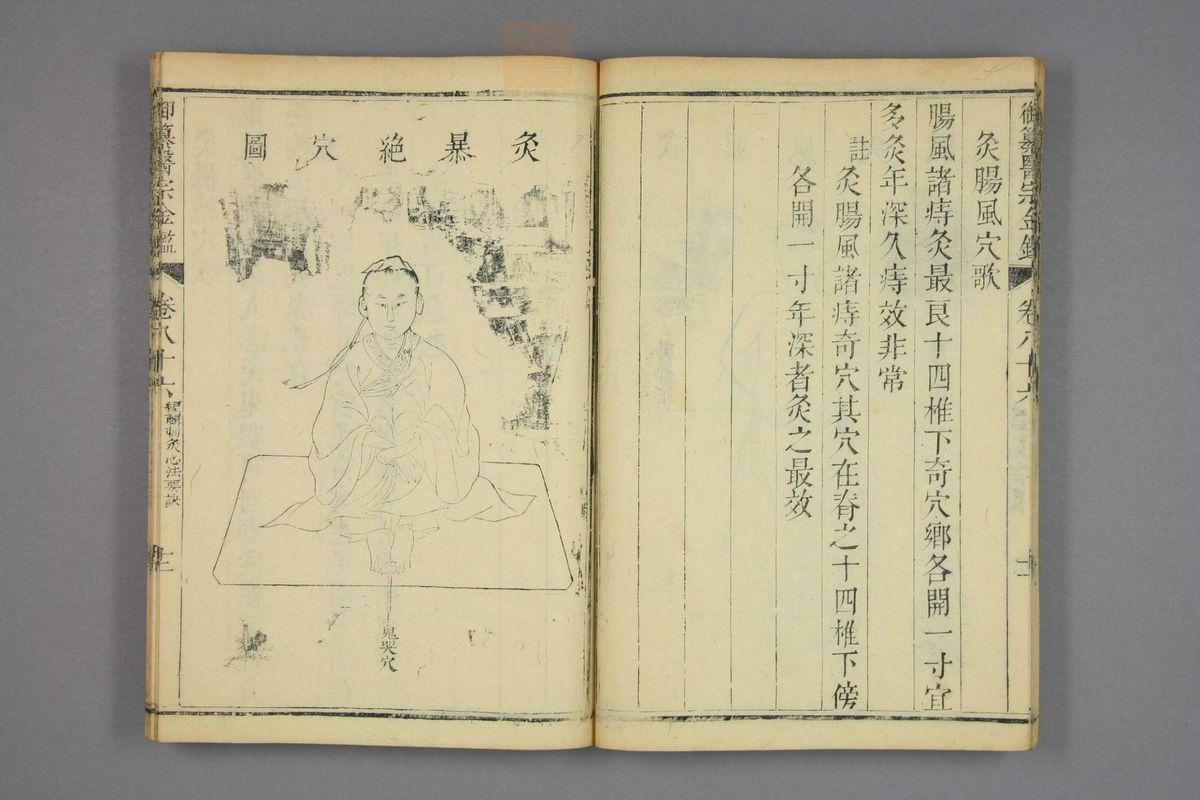 御纂醫宗金鑑
卷八十六
十二
灸腸風穴歌
腸風諸痔灸最良十四椎下奇穴鄉各開一寸宜
多灸年深久痔效非常
註
灸腸風諸痔奇穴其穴在脊之十四椎下傍
各開一寸年深者灸之最效
灸暴絶穴圖
鬼哭穴
御纂醫宗金鑑
卷八十六
編輯刺灸心法要訣
十二